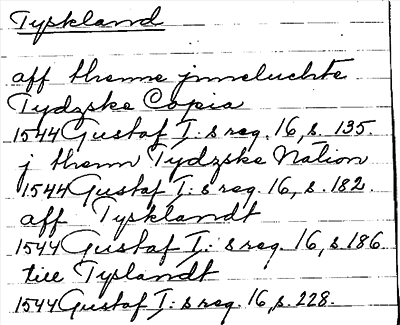 Tyskland
aff thenne jnneluchte
Tydzske Copia
1544 Gustaf I:s reg. 16, s. 135.
j thenn Tydzske Nation
1544 Gustaf I:s reg. 16, s. 182.
aff Tysklandt
1544 Gustaf I:s reg. 16, s. 186
till Tyslandt
1544 Gustaf I:s reg. 16, s. 228.